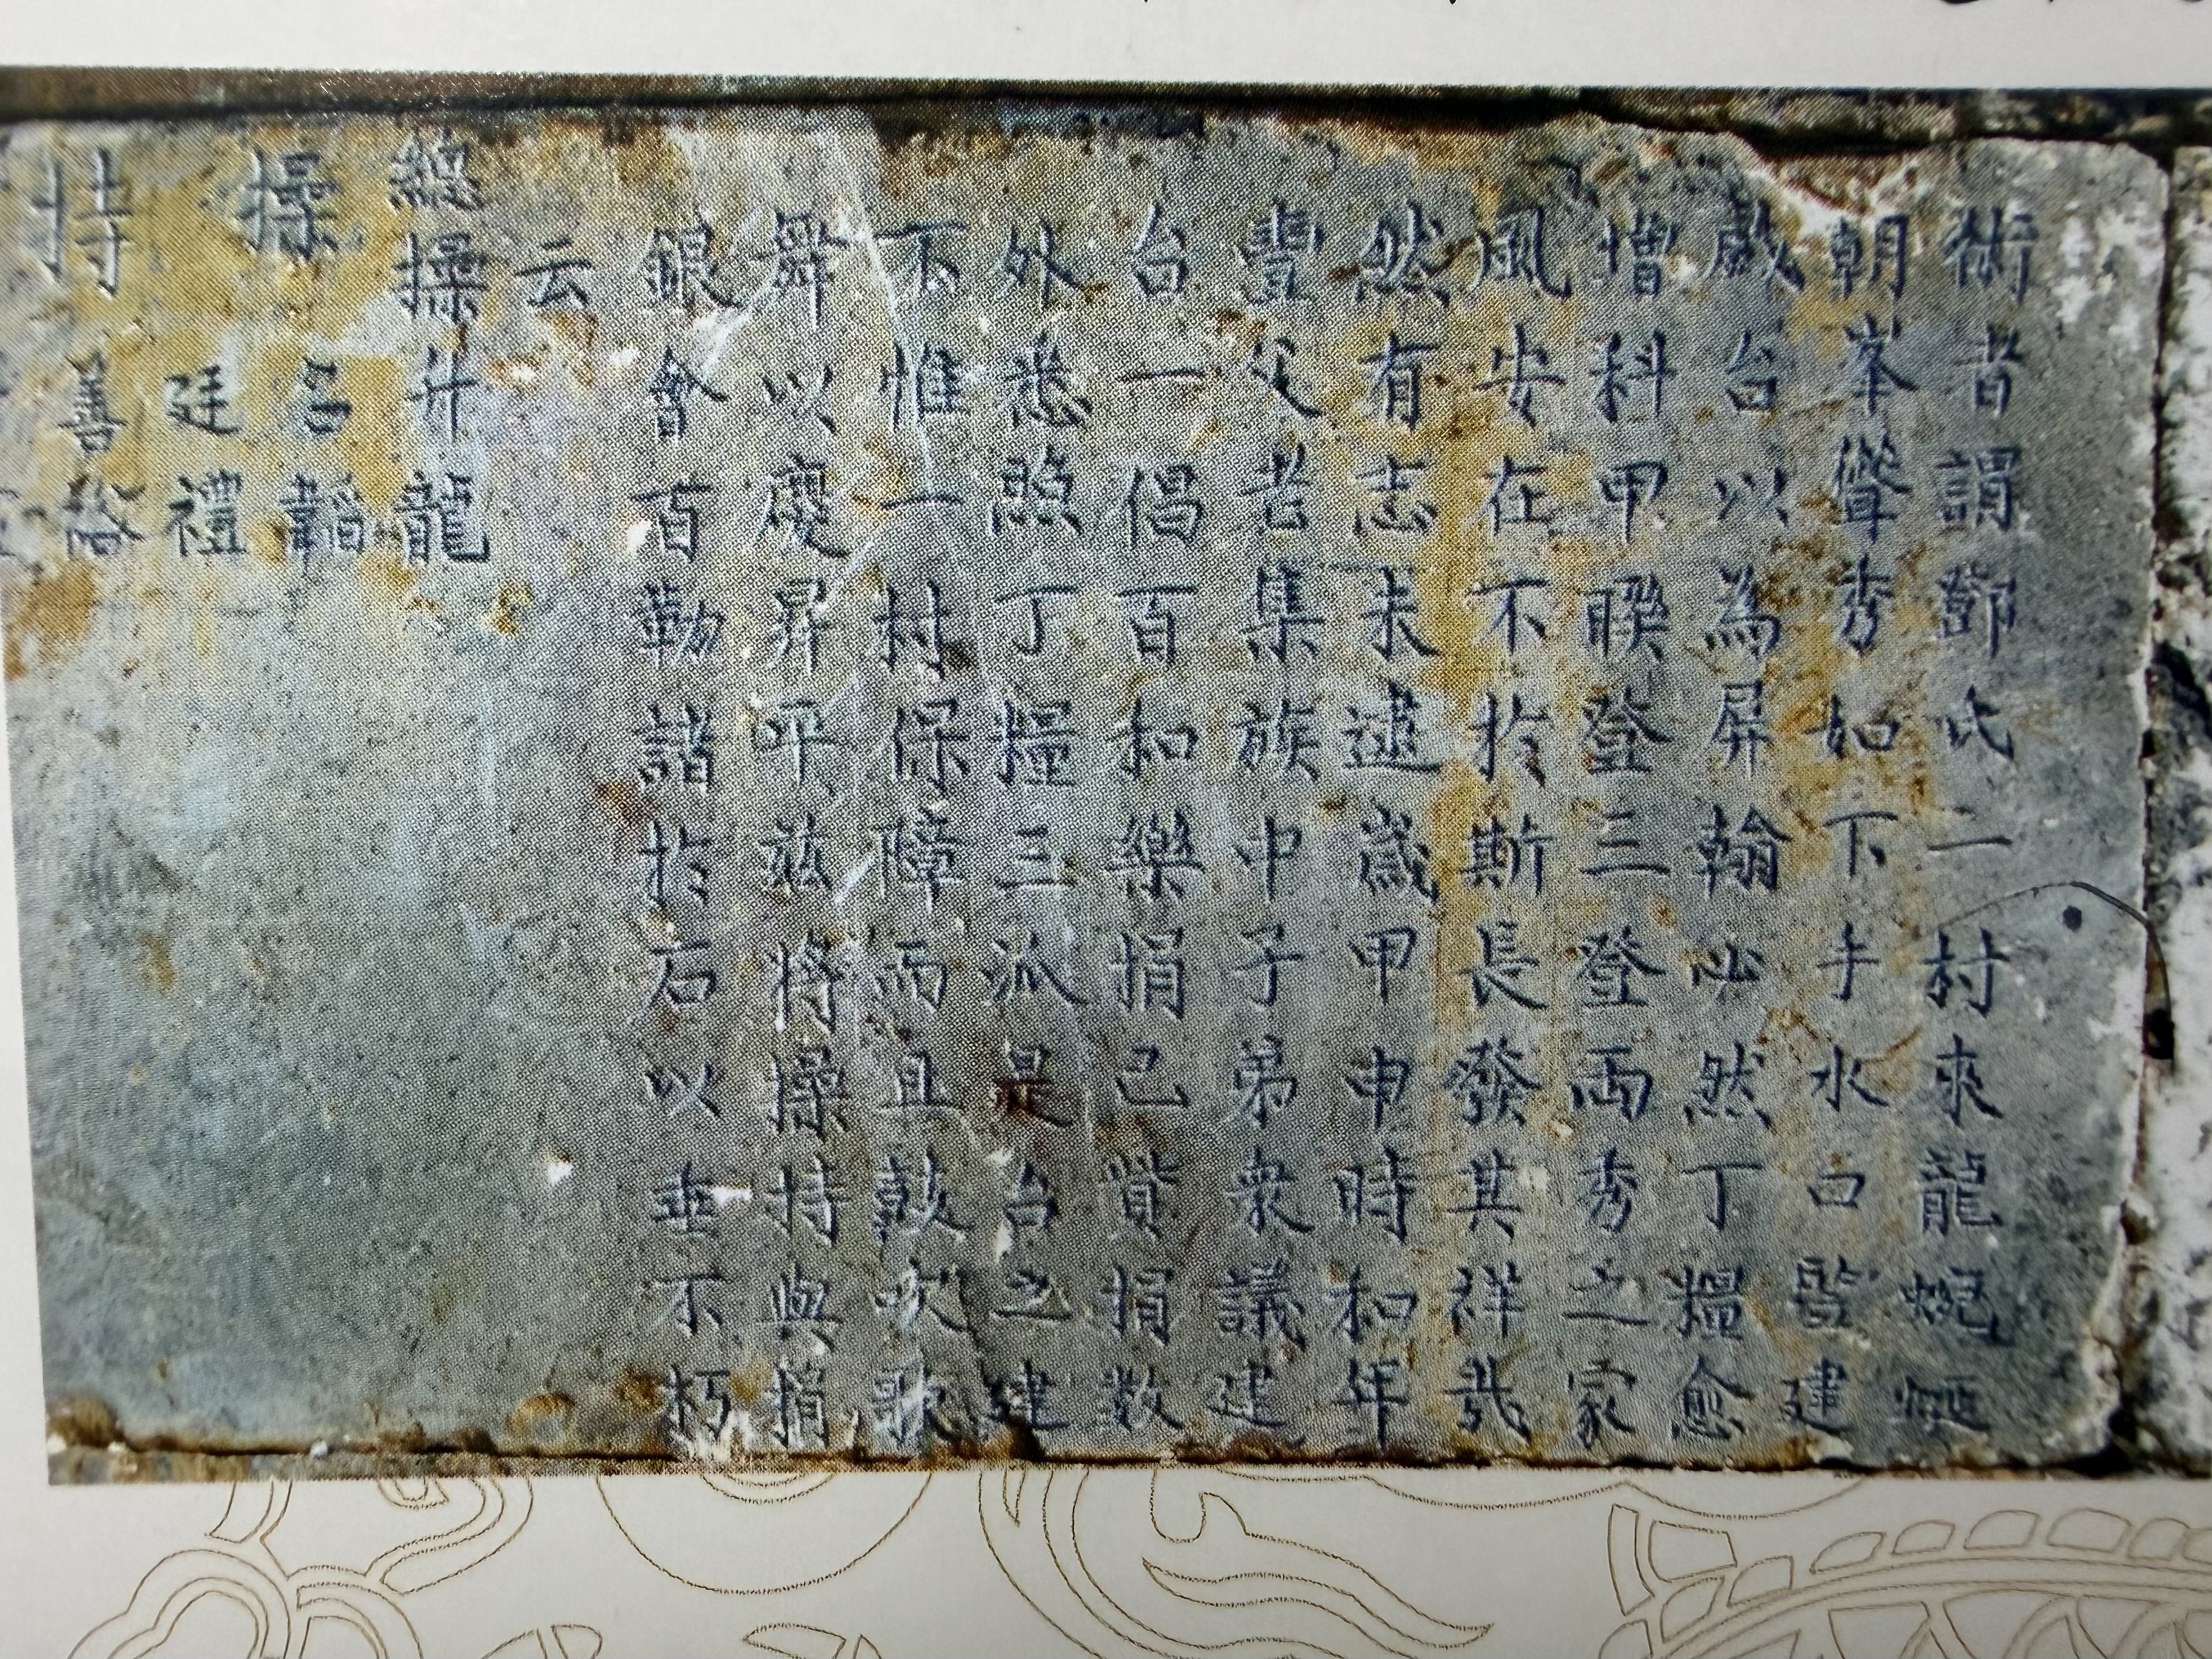 術者謂鄧氏二村來龍蜿蜒
朝峯聳秀如下手水口皆建
戲台以為屏翰必然丁糧愈
增科甲睽登三登两秀之家
風安在不於斯長發其祥哉
然有志未逮歲甲申時和年
豐父老集族中子弟衆議建
台一倡百和樂捐己貲捐数
外悉照丁糧三派是台之建
不惟一村保障而且鼓吹歌
舞以慶昇平茲將操持與捐
銀會百勒諸於石以垂不朽
云
總操升龍
操 名韜
廷禮
持 善裕